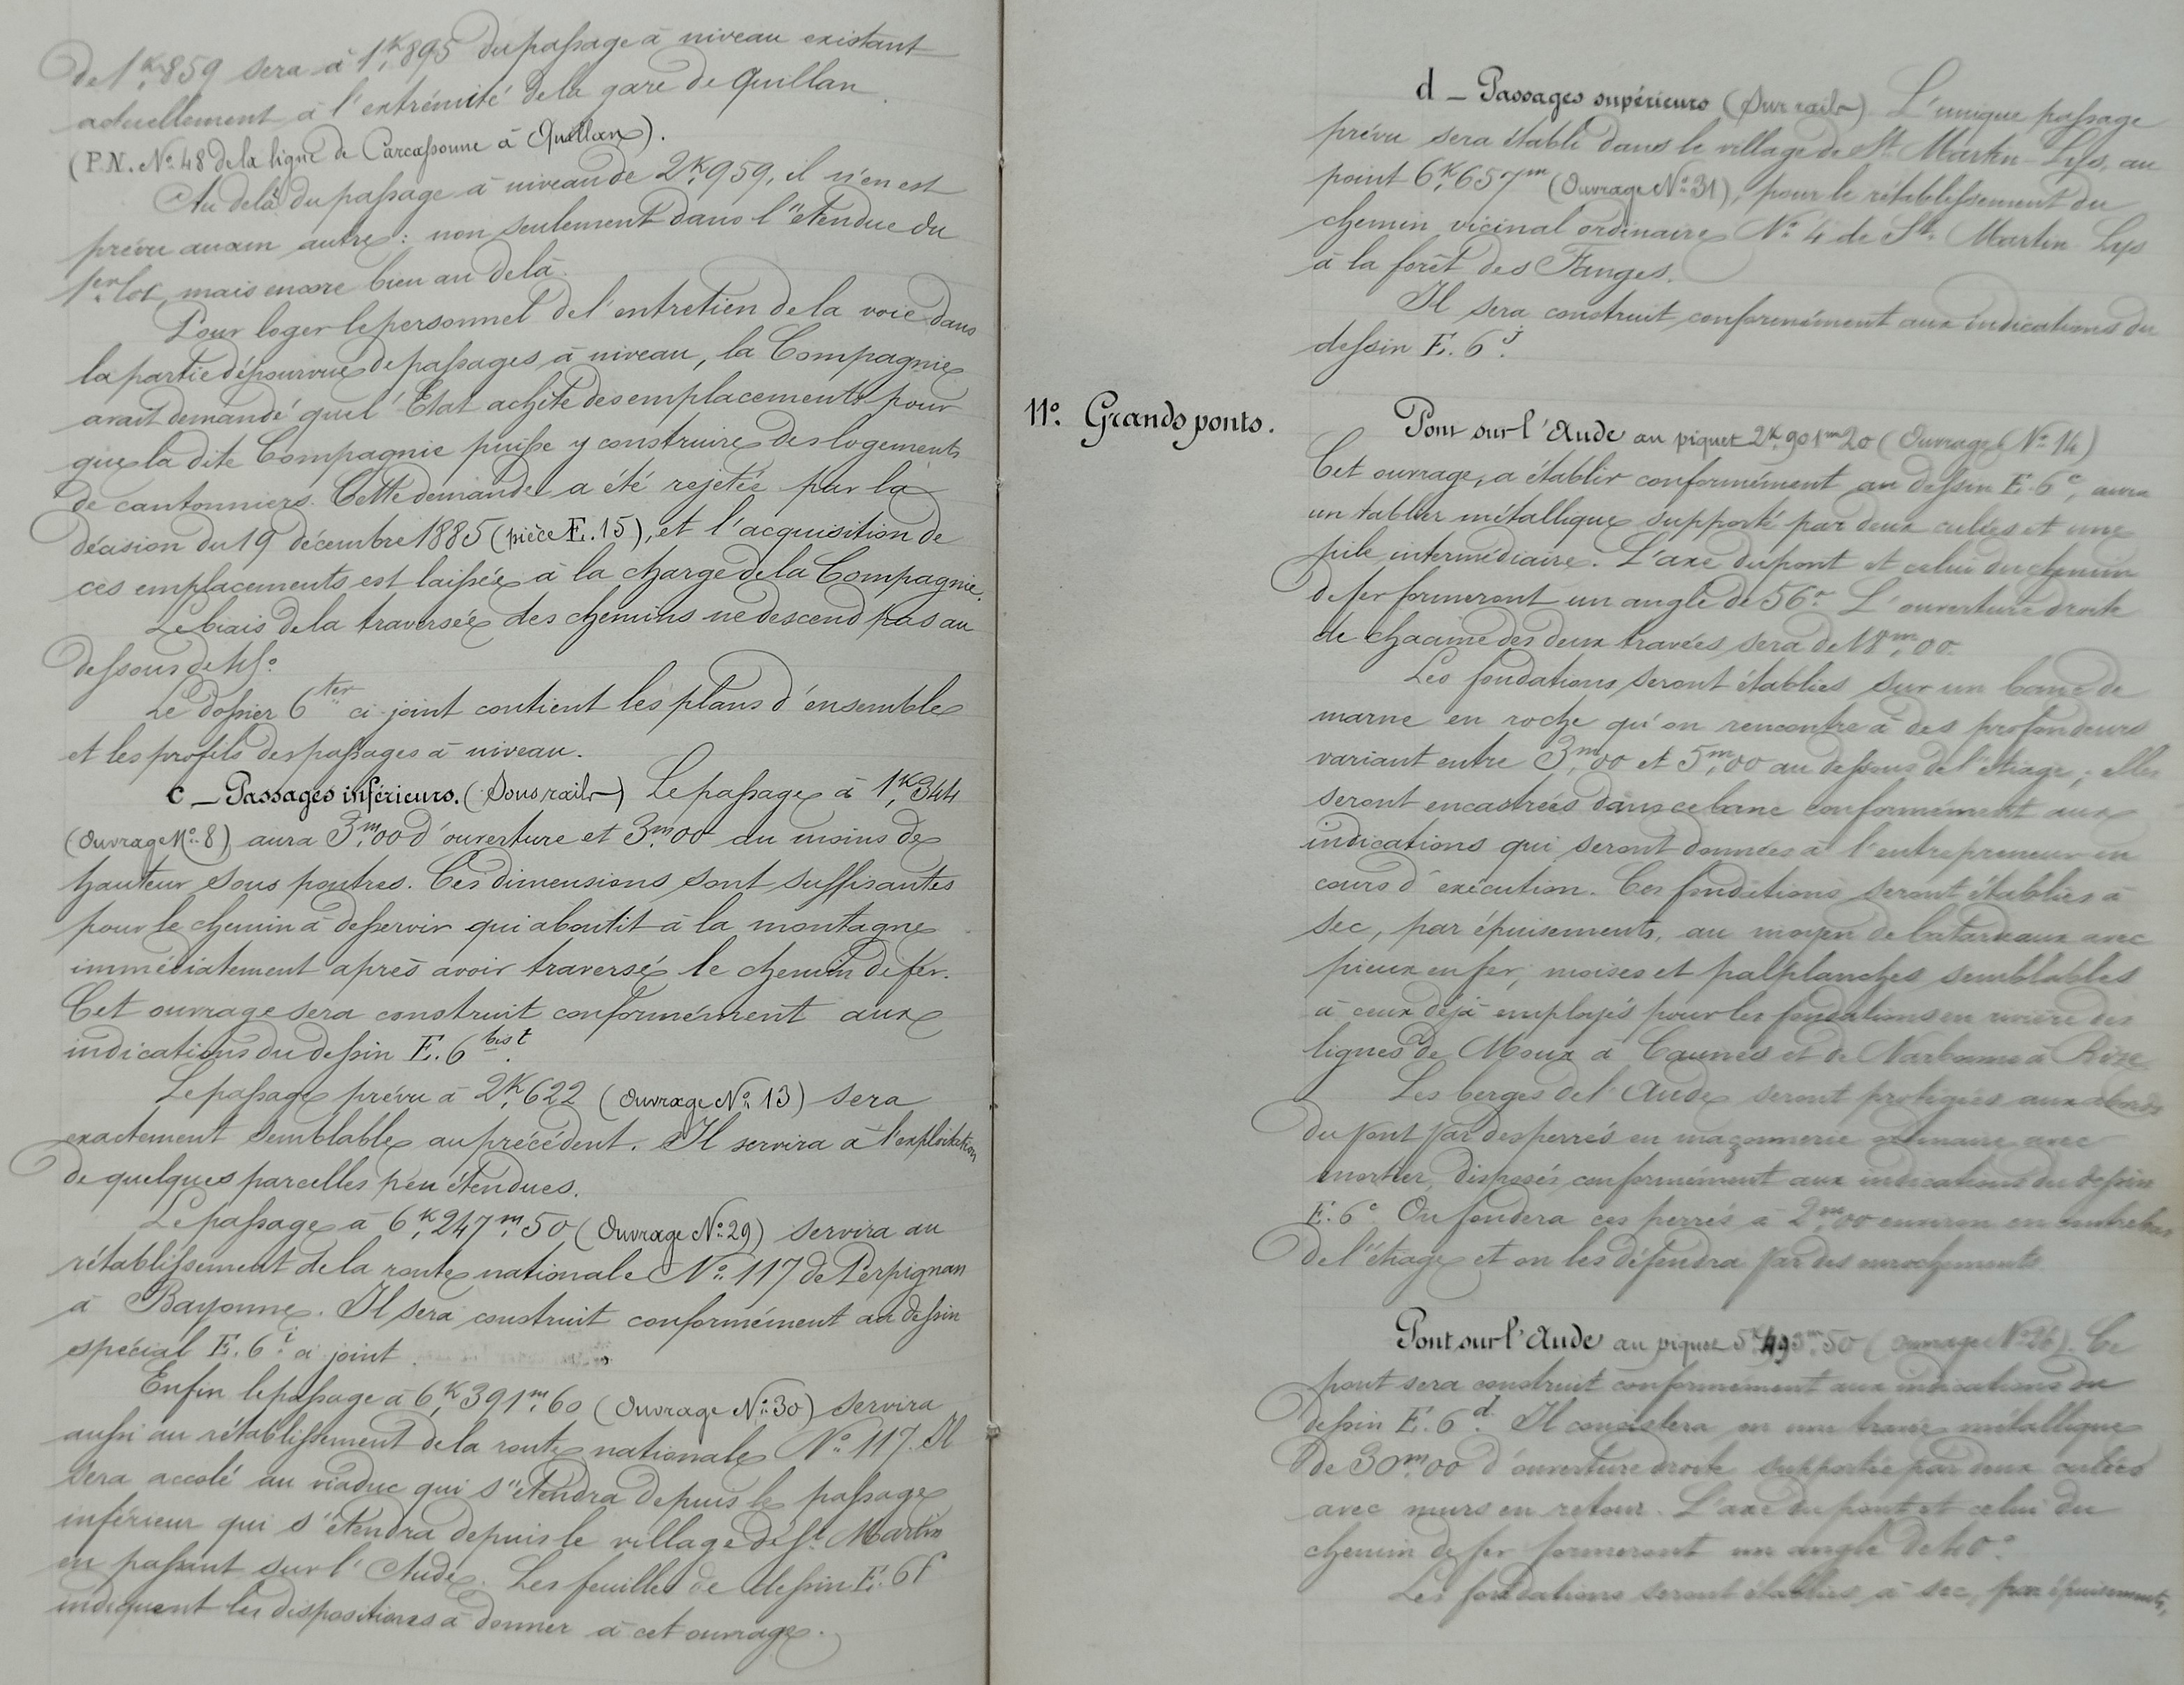 de 1K,859 sera à 1K,895 du passage à niveau existant
actuellement à l'extrémité de la gare de Quillan.
(P.N. No 48 de la ligne de Carcassonne à Quillan).
Au delà du passage à niveau de 2K,959, il n'en est
prévu aucun autre : non seulement dans l'étendue du
1er lot, mais encore bien au delà.
Pour loger le personnel de l'entretien de la voie dans
la partie dépourvue de passages à niveau, la Compagnie
avait demandé que l'Etat achète des emplacements pour
que la dite Compagnie puisse y construire des logements
de cantonniers. Cette demande a été rejetée par la
décision du 19 décembre 1885 (pièce E.15), et l'acquisition de
ces emplacements est laissée à la charge de la Compagnie.
Le biais de la traversée des chemins ne descend pas au
dessous de 45°
Le dossier 6 ter ci-joint contient les plans d'ensemble
et les profils des passages à niveau.
c _ Passages inférieurs. (Sous rails) Le passage à 1K,344
(Ouvrage No 8) aura 3m,00 d'ouverture et 3m,00 au moins de
hauteur sous poutres. Ces dimensions sont suffisantes
pour le chemin à desservir qui aboutit à la montagne
immédiatement après avoir traversé le chemin de fer.
Cet ouvrage sera construit conformément aux
indications du dessin E. 6 bis t.
Le passage prévu à 2K,622 (Ouvrage No 13) sera
exactement semblable au précédent. Il servira à l'exploitation
de quelques parcelles peu étendues.
Le passage à 6K,247m,50 (Ouvrage No 29) servira au
rétablissement de la route nationale No 117 de Perpignan
à Bayonne. Il sera construit conformément au dessin
spécial E. 6 i ci joint.
Enfin le passage à 6K,391m,60 (Ouvrage No 30) servira
aussi au rétablissement de la route nationale No 117. Il
sera accolé au viaduc qui s'étendra depuis le passage
inférieur qui s'étendra depuis le village de St Martin
en passant sur l'Aude. Les feuilles de dessin E. 6 f
indiquent les dispositions à donner à cet ouvrage.
d _ Passages supérieurs (Sur rails) L'unique passage
prévu sera établi dans le village de St Martin-Lys, au
point 6K,657m (Ouvrage No 31), pour le rétablissement du
chemin vicinal ordinaire No 4 de St Martin Lys
à la forêt des Fanges.
Il sera construit conformément aux indications du
dessin E. 6 j.
11° Grands ponts.
Pont sur l'Aude au piquet 2K,901m20 (Ouvrage No 14)
Cet ouvrage, à établir conformément au dessin E. 6 c, aura
un tablier métallique supporté par deux culées et une
pile intermédiaire. L'axe du pont et celui du chemin
de fer formeront un angle de 56° L'ouverture droite
de chacune des deux travées sera de 18m,00.
Les fondations seront établies sur un banc de
marne en roche qu'on rencontre à des profondeurs
variant entre 3m,00 et 5m,00 au dessous de l'étiage ; elles
seront encastrées dans ce banc conformément aux
indications qui seront données à l'entrepreneur en
cours d'exécution. Ces fondations seront établies à
sec, par épuisements, au moyen de batardeaux avec
pieux en fer, moises et palplanches semblables
à ceux déjà employés pour les fondations en rivière des
lignes de Moux à Caunes et de Narbonne à Bize
Les berges de l'Aude seront protégées aux abords
du pont par des perrés en maçonnerie ordinaire avec
mortier, disposés conformément aux indications du dessin
E. 6 c. On fondera ces perrés à 2m,00 environ en contrebas
de l'étiage et on les défendra par des enrochements
Pont sur l'Aude au piquet 5K,493m,50 (Ouvrage No 26). Ce
pont sera construit conformément aux indications du
dessin E. 6 d. Il consistera en une travée métallique
de 30m,00 d'ouverture droite supportée par deux culées
avec murs en retour. L'axe du pont et celui du
chemin de fer formeront un angle de 40°.
Les fondations seront établies à sec, par épuisements,